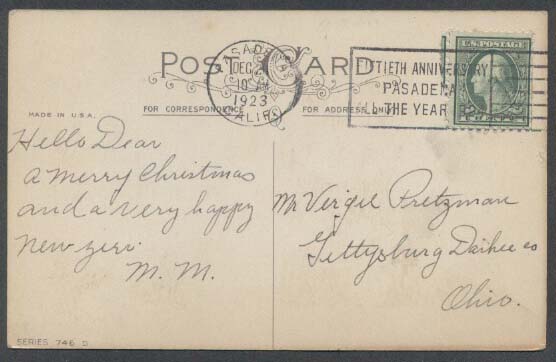 POST CARD
PASADENA
DEC
1923
CALIF.
FTIETH ANNIVERSARY
PASADENA
THE YEAR
U.S. POSTAGE
MADE IN U.S.A.
FOR CORRESPONDENCE
FOR ADDRESS ONLY
Hello Dear
a merry Christmas
and a very happy
New zero.
M. M.
Mr Virgel Pretzman
Gettysburg Darke co
Ohio.
SERIES 746 D